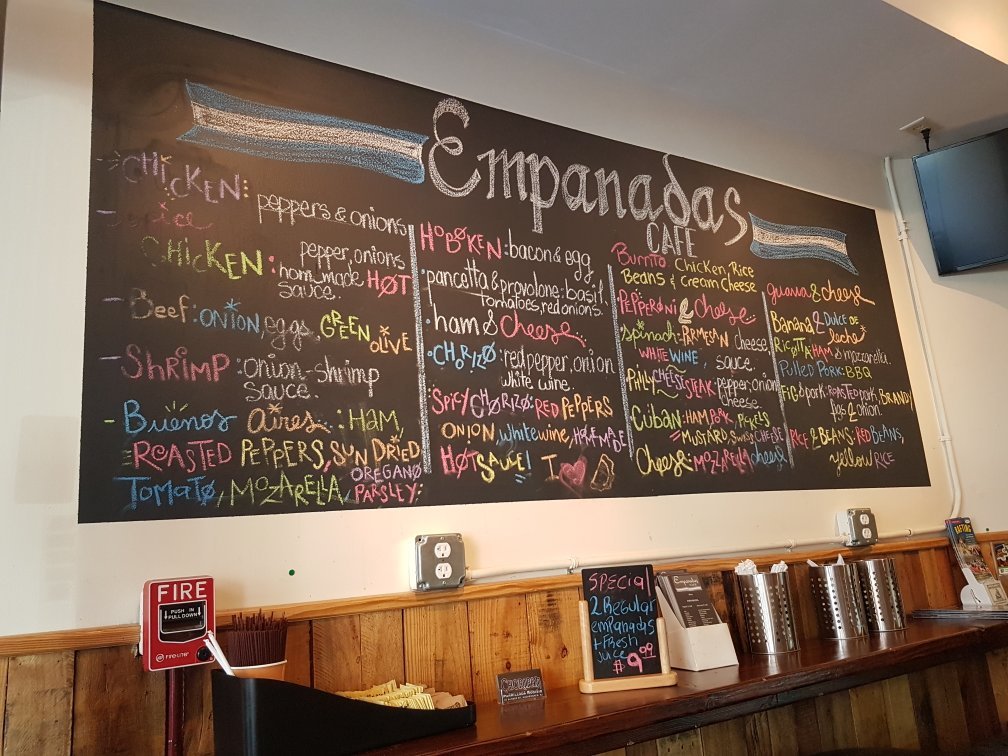 Empanadas
CAFE
CHICKEN: peppers & onions
Spice
CHICKEN: pepper, onions
homemade HOT
sauce.
Beef: ONION, eggs GREEN
OLIVE
SHRIMP: onion-shrimp
sauce.
Buenos aires: HAM,
ROASTED PEPPERS, SUN DRIED
TOMATO, MOZARELLA, OREGANO
PARSLEY:
HOBOKEN: bacon & egg
pancetta & provolone: basil,
tomatoes, red onions.
ham & cheese
CHORIZO: red pepper, onion
white wine.
SPICY CHORIZO: RED PEPPERS
ONION, white wine, HOMEMADE
HOT SAUCE! I
Burrito Chicken, Rice
Beans & Cream Cheese
PEPPERONI & cheese
spinach: PARMESAN cheese
WHITE WINE, sauce.
PHILLY CHEESESTEAK: pepper, onion
cheese
CUBAN: HAM, PORK, PICKELS
MUSTARD, SWISS CHEESE
Cheese: MOZARELLA cheese
guava & cheese
Banana & DULCE DE
leche
RICOTTA: HAM & mozzarella
Pulled PORK: BBQ
FIG & pork: ROASTED pork, BRANDY
figs & onion.
RICE & BEANS: RED BEANS,
yellow RICE
FIRE
PUSH IN
PULL DOWN
FIRE-LITE
SPECIAL
2 Regular
emPanadas
+ FResh
Juice
$9.99
Empanadas